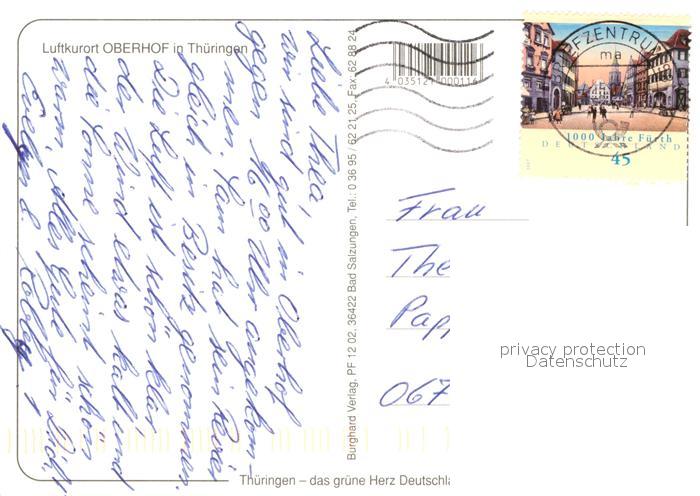 Luftkurort OBERHOF in Thüringen
Liebe Thea,
wir sind gut in Oberhof
gegen 16.00 Uhr angekom-
men. Sam hat sein Revier
gleich in Besitz genommen.
Die Luft ist schön klar
der Wind etwas kalt und
die Sonne scheint schön
warm. Alles Gute für Dich!
Burghard Verlag, PF 12 02, 36422 Bad Salzungen, Tel.: 0 36 95 / 62 21 25, Fax: 62 88 24
4 035127 000114
FZENTRUM
ma
1000 Jahre Fürth
DEUTSCHLAND
45
Frau
The
Pap
067
privacy protection
Datenschutz
Thüringen – das grüne Herz Deutschla